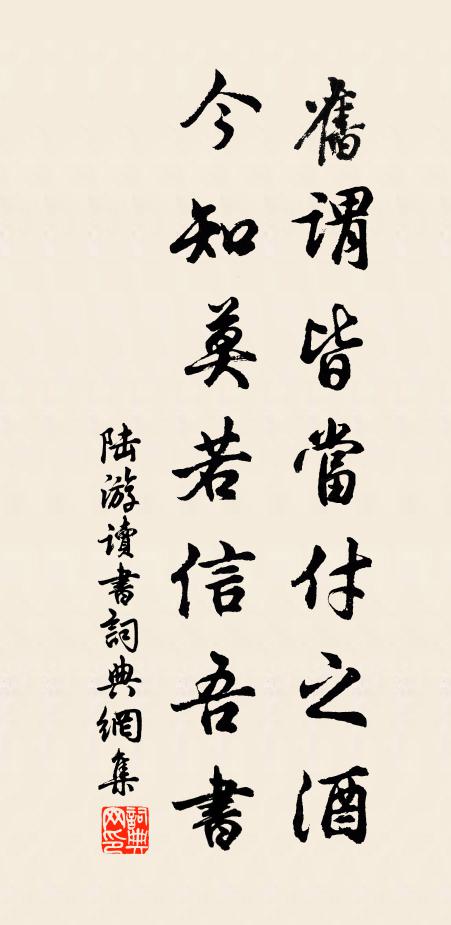 舊謂皆當付之酒
今知莫若信吾書
陆游讀書詞典網集
詞典網印